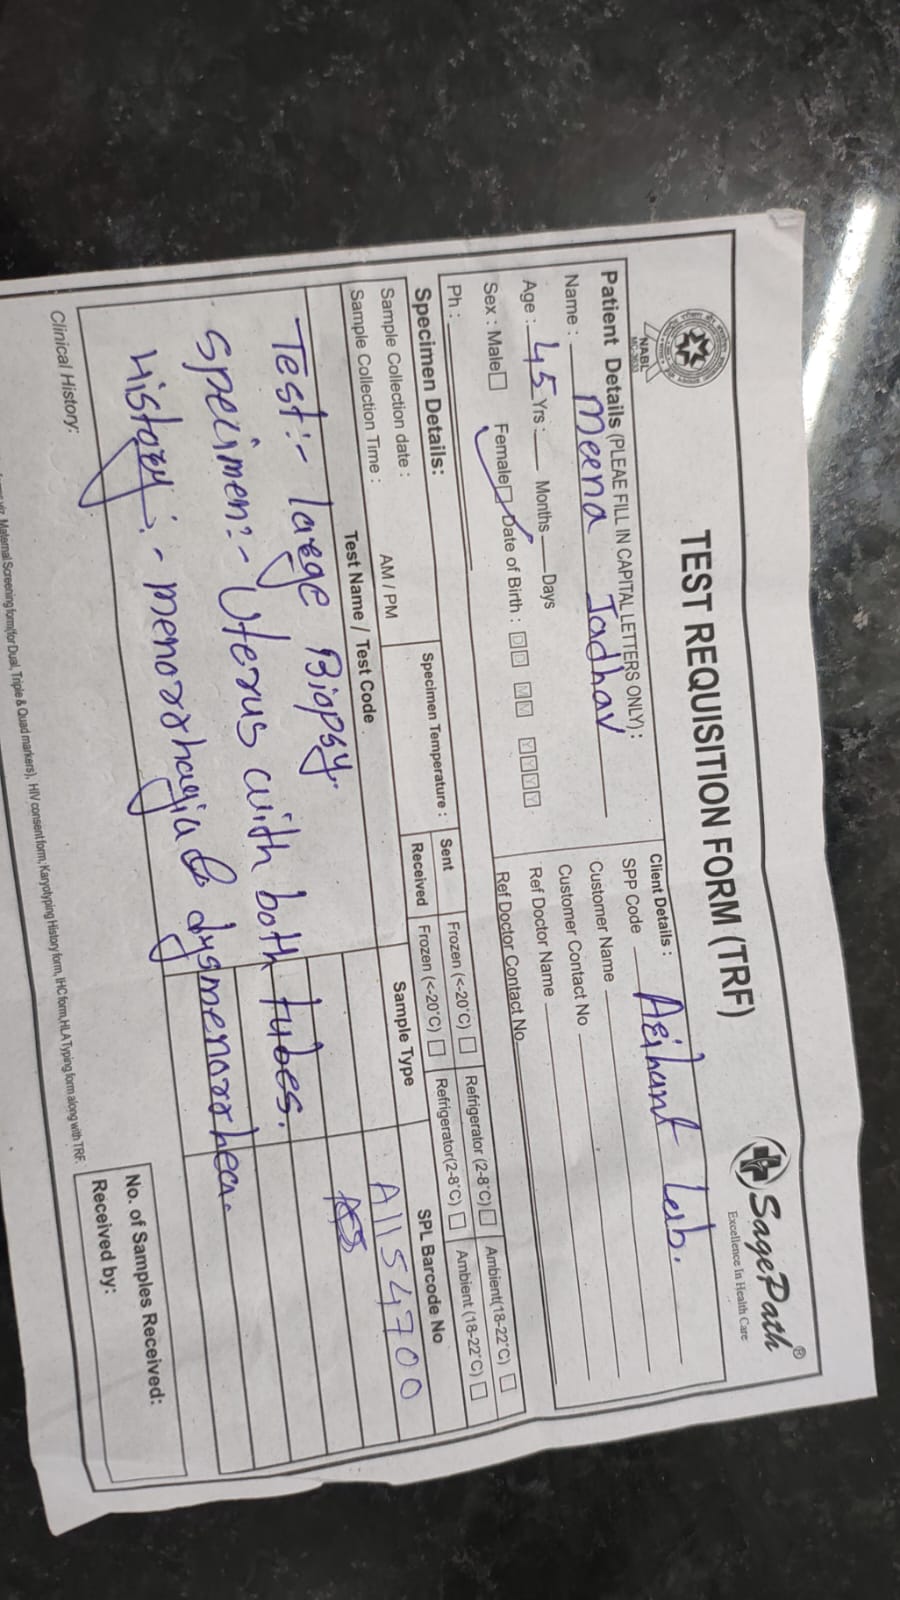 TEST REQUISITION FORM (TRF)
SagePath®
Excellence In Health Care
NABL
Patient Details (PLEAE FILL IN CAPITAL LETTERS ONLY) :
Name : Meena Jadhav
Age : 45 Yrs : Months Days
Sex : Male Female Date of Birth : DD MM YYYY
Ph :
Client Details : Arihant Lab.
SPP Code
Customer Name
Customer Contact No
Ref Doctor Name
Ref Doctor Contact No
Specimen Details:
Specimen Temperature :
Sent Frozen (<-20°C) Refrigerator (2-8°C) Ambient(18-22°C)
Received Frozen (<-20°C) Refrigerator(2-8°C) Ambient (18-22°C)
Sample Collection date :
Sample Collection Time : AM / PM
Test Name / Test Code Sample Type SPL Barcode No
A1154700
Test:- large Biopsy.
Specimen:- Uterus with both tubes.
History:- menorrhagia & dysmenorrhea
Clinical History:
No. of Samples Received:
Received by:
Maternal Screening form(for Dual, Triple & Quad markers), HIV consent form, Karyotyping History form, IHC form, HLA Typing form along with TRF.